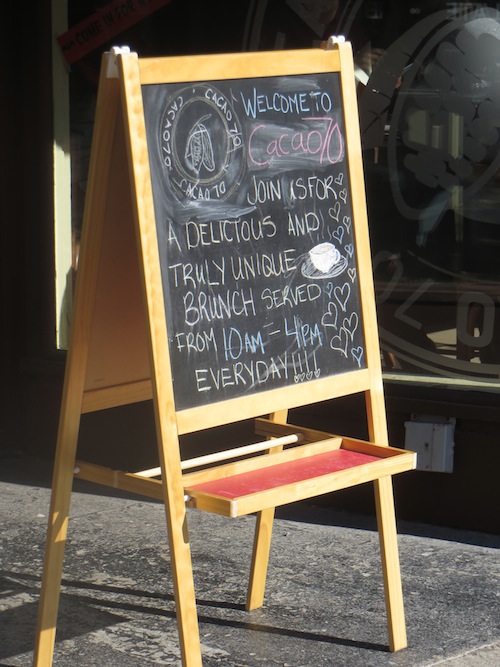 COME IN
CACAO 70
CACAO 70
CACAO 70
WELCOME TO
Cacao70
JOIN US FOR
A DELICIOUS AND
TRULY UNIQUE
BRUNCH SERVED
FROM 10AM - 4PM
EVERYDAY!!!!